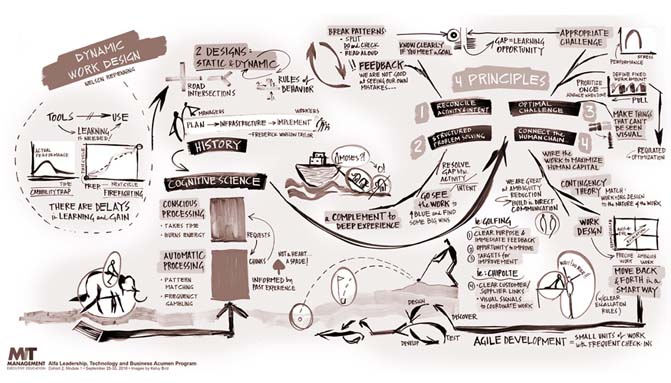 DYNAMIC
WORK DESIGN
NELSON REPENNING
TOOLS → USE
LEARNING
IS NEEDED!
ACTUAL
PERFORMANCE
TIME
CAPABILITY TRAP
PREP
FIREFIGHTING
THERE ARE DELAYS
in LEARNING and GAIN
2 DESIGNS:
STATIC & DYNAMIC
ROAD
INTERSECTIONS
RULES of
BEHAVIOR
MANAGERS
WORKERS
PLAN → INFRASTRUCTURE → IMPLEMENT
- FREDERICK WINSLOW TAYLOR
HISTORY
COGNITIVE SCIENCE
CONSCIOUS
PROCESSING
• TAKES TIME
• BURNS ENERGY
REQUESTS
AUTOMATIC
PROCESSING
• PATTERN
MATCHING
• FREQUENT
GAMBLING
CHUNKS
NOT A HEART...
A SPADE!
INFORMED by
PAST EXPERIENCE
BREAK PATTERNS:
• SPLIT
DO and CHECK
• READ ALOUD
FEEDBACK
WE ARE NOT GOOD
at SEEING OUR OWN
MISTAKES...
KNOW CLEARLY
IF YOU MEET a GOAL
GAP = LEARNING
OPPORTUNITY
APPROPRIATE
CHALLENGE
STRESS
PERFORMANCE
4 PRINCIPLES
1 RECONCILE
ACTIVITY & INTENT
2 STRUCTURED
PROBLEM SOLVING
OPTIMAL
CHALLENGE 3
CONNECT the
HUMAN CHAIN 4
PRIORITIZE
ONCE
DEFINE FIXED
WORK AMOUNT
PULL
MAKE THINGS
THAT CAN'T BE
SEEN VISUAL
REGULATED
OPTIMIZATION
MOSES?!
a COMPLEMENT to
DEEP EXPERIENCE
RESOLVE
GAP in
ACTIVITY
INTENT
GO SEE
the WORK to
BLUE and FIND
SOME BIG WINS
WIRE the
WORK to MAXIMIZE
HUMAN CAPITAL
WE ARE GREAT
at AMBIGUITY
REDUCTION
BUILD in DIRECT
COMMUNICATION
CONTINGENCY
THEORY MATCH
WORK DESIGN
to the NATURE of the WORK
ie: GOLFING
① CLEAR PURPOSE &
IMMEDIATE FEEDBACK
② OPPORTUNITY to IMPROVE
③ TARGETS for
IMPROVEMENT
ie: CHIPOTLE
④ CLEAR CUSTOMER/
SUPPLIER LINKS
• VISUAL SIGNALS
to COORDINATE WORK
WORK
DESIGN
PRECISE WORK
AMBIGUOUS WORK
MOVE BACK
& FORTH in a
SMART WAY
(w/ CLEAR
ESCALATION
RULES)
DESIGN
DISCOVER
DEVELOP
TEST
AGILE DEVELOPMENT = SMALL UNITS of WORK
w/ FREQUENT CHECK-INS
MIT
MANAGEMENT
EXECUTIVE EDUCATION
Alfa Leadership, Technology and Business Acumen Program